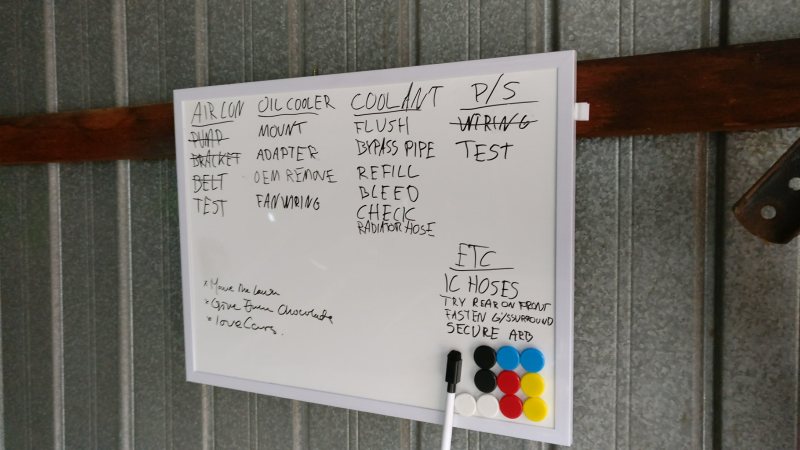 AIRCON
PUMP
BRACKET
BELT
TEST
OIL COOLER
MOUNT
ADAPTER
OEM REMOVE
FAN WIRING
COOLANT
FLUSH
BYPASS PIPE
REFILL
BLEED
CHECK
RADIATOR HOSE
P/S
WIRING
TEST
ETC
IC HOSES
TRY REAR ON FRONT
FASTEN G/SSURROUND
SECURE ARB
* Mowe the Lawn
* Give Chocolate
* love Cars.